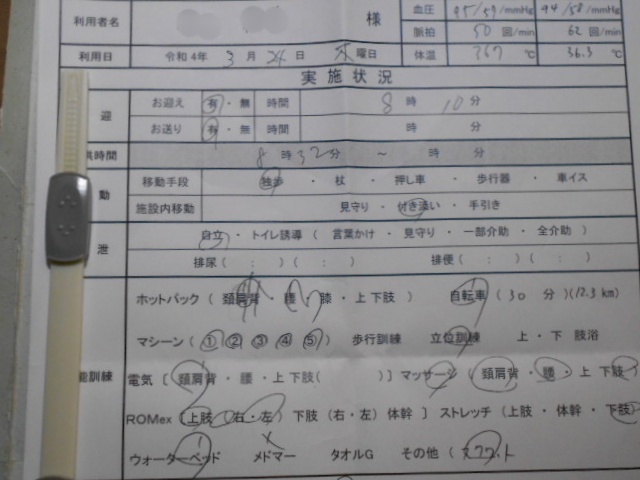 利用者名 様 血圧 95/59/mmHg 94/58/mmHg
脈拍 50 回/min 62 回/min
利用日 令和4年 3月 24日 木曜日 体温 36.7 ℃ 36.3 ℃
実施状況
迎 お迎え 有・無 時間 8時 10分
お送り 有・無 時間 時 分
供時間 8時32分 ～ 時 分
動 移動手段 独歩 ・ 杖 ・ 押し車 ・ 歩行器 ・ 車イス
施設内移動 見守り ・ 付き添い ・ 手引き
泄 自立 ・ トイレ誘導 ( 言葉かけ ・ 見守り ・ 一部介助 ・ 全介助 )
排尿 ( : ) ( : ) 排便 ( : ) ( : )
ホットパック ( 頚肩背 腰 ・ 膝 ・ 上下肢 ) 自転車 ( 30 分 )(12.3 km)
マシーン ( ① ② ③ ④ ⑤ ) 歩行訓練 立位訓練 上 ・ 下 肢浴
能訓練 電気 [ 頚肩背 ・ 腰 ・ 上下肢( )] マッサージ ( 頚肩背 ・ 腰 ・ 上 下肢 )
ROMex (上肢 (右・左) 下肢 (右・左) 体幹 ] ストレッチ (上肢 ・ 体幹 ・ 下肢)
ウォーターベッド メドマー タオルG その他 ( スクワット